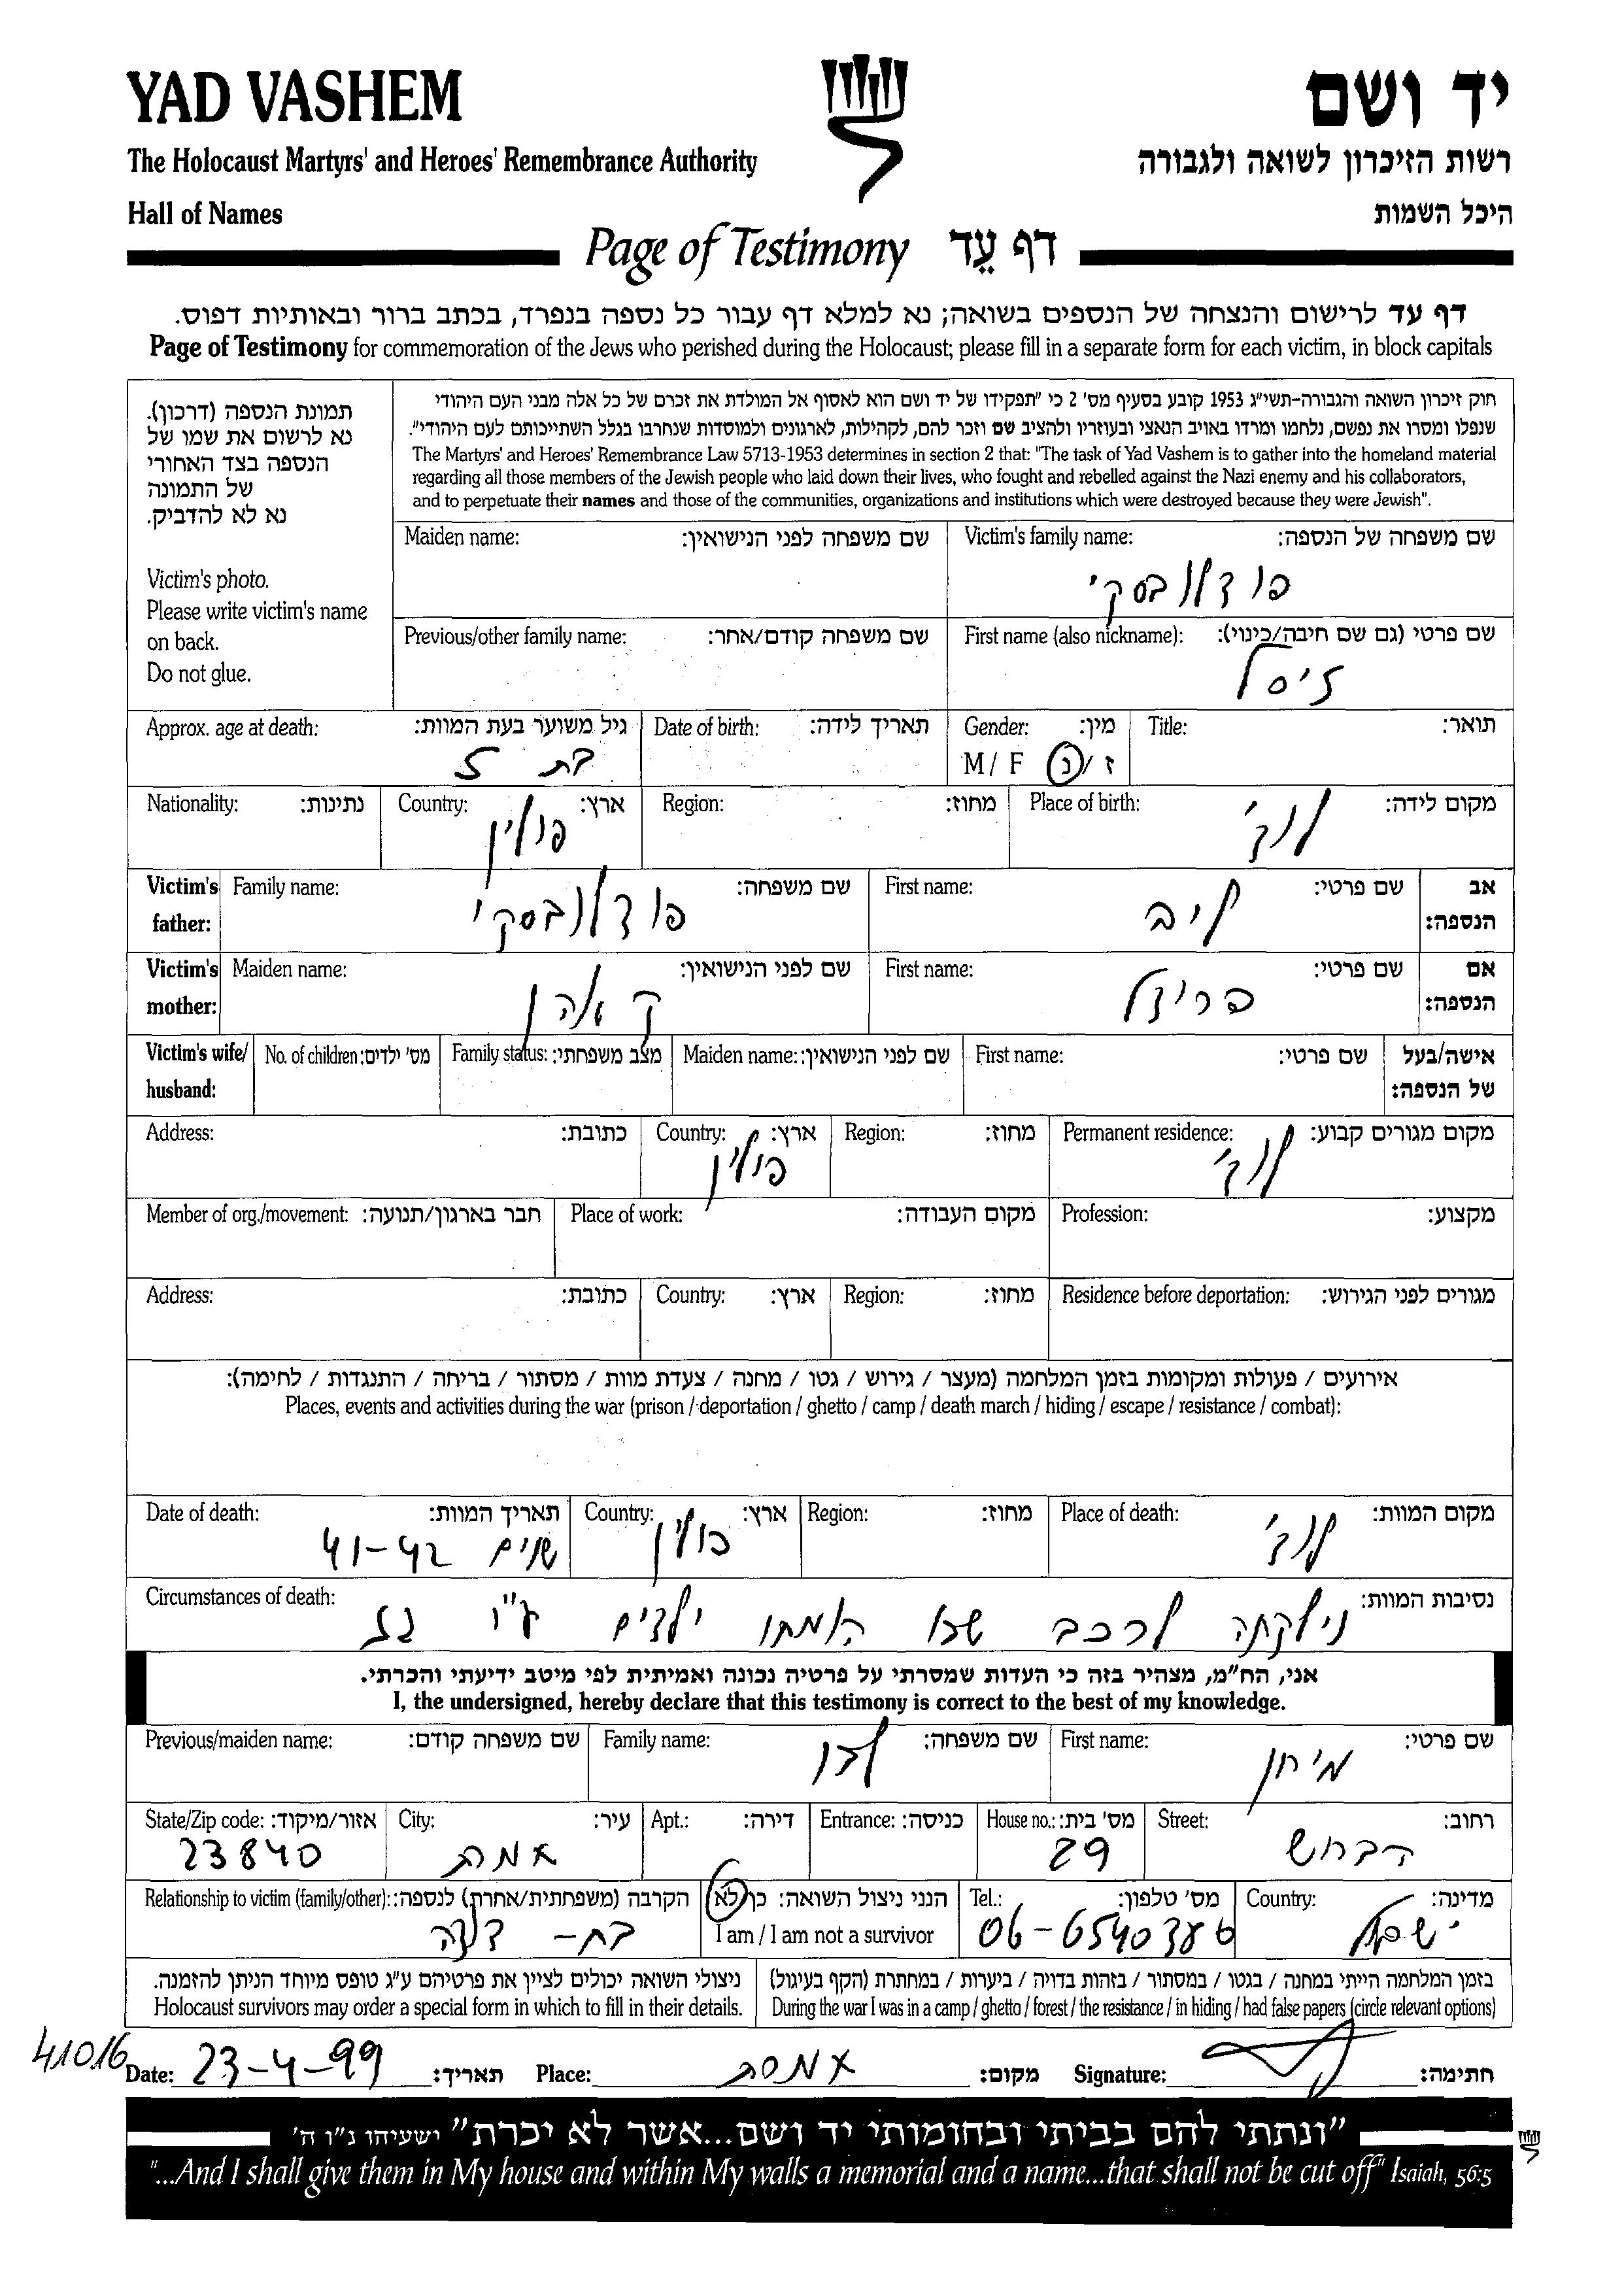 YAD VASHEM
יד ושם
The Holocaust Martyrs' and Heroes' Remembrance Authority
רשות הזיכרון לשואה ולגבורה
Hall of Names
היכל השמות
Page of Testimony דף עֵד
דף עד לרישום והנצחה של הנספים בשואה; נא למלא דף עבור כל נספה בנפרד, בכתב ברור ובאותיות דפוס.
Page of Testimony for commemoration of the Jews who perished during the Holocaust; please fill in a separate form for each victim, in block capitals
תמונת הנספה (דרכון).
נא לרשום את שמו של
הנספה בצד האחורי
של התמונה
נא לא להדביק.
Victim's photo.
Please write victim's name
on back.
Do not glue.
חוק זיכרון השואה והגבורה-תשי"ג 1953 קובע בסעיף מס' 2 כי "תפקידו של יד ושם הוא לאסוף אל המולדת את זכרם של כל אלה מבני העם היהודי
שנפלו ומסרו את נפשם, נלחמו ומרדו באויב הנאצי ובעוזריו ולהציב שם וזכר להם, לקהילות, לארגונים ולמוסדות שנחרבו בגלל השתייכותם לעם היהודי".
The Martyrs' and Heroes' Remembrance Law 5713-1953 determines in section 2 that: "The task of Yad Vashem is to gather into the homeland material
regarding all those members of the Jewish people who laid down their lives, who fought and rebelled against the Nazi enemy and his collaborators,
and to perpetuate their names and those of the communities, organizations and institutions which were destroyed because they were Jewish".
Maiden name: שם משפחה לפני הנישואין:
Victim's family name: שם משפחה של הנספה:
פודלובסקי
Previous/other family name: שם משפחה קודם/אחר:
First name (also nickname): שם פרטי (גם שם חיבה/כינוי):
זיסל
Approx. age at death: גיל משוער בעת המוות:
בת 5
Date of birth: תאריך לידה:
Gender: מין:
M/ F ז/נ
Title: תואר:
Nationality: נתינות:
Country: ארץ:
פולין
Region: מחוז:
Place of birth: מקום לידה:
לודג'
Victim's father: Family name: שם משפחה:
פודלובסקי
First name: שם פרטי:
לייב
אב הנספה:
Victim's mother: Maiden name: שם לפני הנישואין:
First name: שם פרטי:
אם הנספה:
Victim's wife/ husband: No. of children: מס' ילדים:
Family status: מצב משפחתי:
Maiden name: שם לפני הנישואין:
First name: שם פרטי:
אישה/בעל של הנספה:
Address: כתובת:
Country: ארץ:
פולין
Region: מחוז:
Permanent residence: מקום מגורים קבוע:
לודג'
Member of org./movement: חבר בארגון/תנועה:
Place of work: מקום העבודה:
Profession: מקצוע:
Address: כתובת:
Country: ארץ:
Region: מחוז:
Residence before deportation: מגורים לפני הגירוש:
אירועים / פעולות ומקומות בזמן המלחמה (מעצר / גירוש / גטו / מחנה / צעדת מוות / מסתור / בריחה / התנגדות / לחימה):
Places, events and activities during the war (prison / deportation / ghetto / camp / death march / hiding / escape / resistance / combat):
Date of death: תאריך המוות:
שנים 41-42
Country: ארץ:
פולין
Region: מחוז:
Place of death: מקום המוות:
לודג'
Circumstances of death: נסיבות המוות:
נילקחה לרכב שבו המתו ילדים ע"י גז
אני, הח"מ, מצהיר בזה כי העדות שמסרתי על פרטיה נכונה ואמיתית לפי מיטב ידיעתי והכרתי.
I, the undersigned, hereby declare that this testimony is correct to the best of my knowledge.
Previous/maiden name: שם משפחה קודם:
Family name: שם משפחה:
First name: שם פרטי:
State/Zip code: אזור/מיקוד:
23840
City: עיר:
Apt.: דירה:
Entrance: כניסה:
House no.: מס' בית:
29
Street: רחוב:
Relationship to victim (family/other): הקרבה (משפחתית/אחרת) לנספה:
בת- דודה
הנני ניצול השואה: כן/לא
I am / I am not a survivor
Tel.: מס' טלפון:
06-6540386
Country: מדינה:
ישראל
ניצולי השואה יכולים לציין את פרטיהם ע"ג טופס מיוחד הניתן להזמנה.
Holocaust survivors may order a special form in which to fill in their details.
בזמן המלחמה הייתי במחנה / בגטו / במסתור / בזהות בדויה / ביערות / במחתרת (הקף בעיגול)
During the war I was in a camp / ghetto / forest / the resistance / in hiding / had false papers (circle relevant options)
41016
Date: 23-4-99 תאריך:
Place: מקום:
Signature: חתימה:
"ונתתי להם בביתי ובחומותי יד ושם...אשר לא יכרת" ישעיהו נ"ו ה'
"...And I shall give them in My house and within My walls a memorial and a name...that shall not be cut off" Isaiah, 56:5